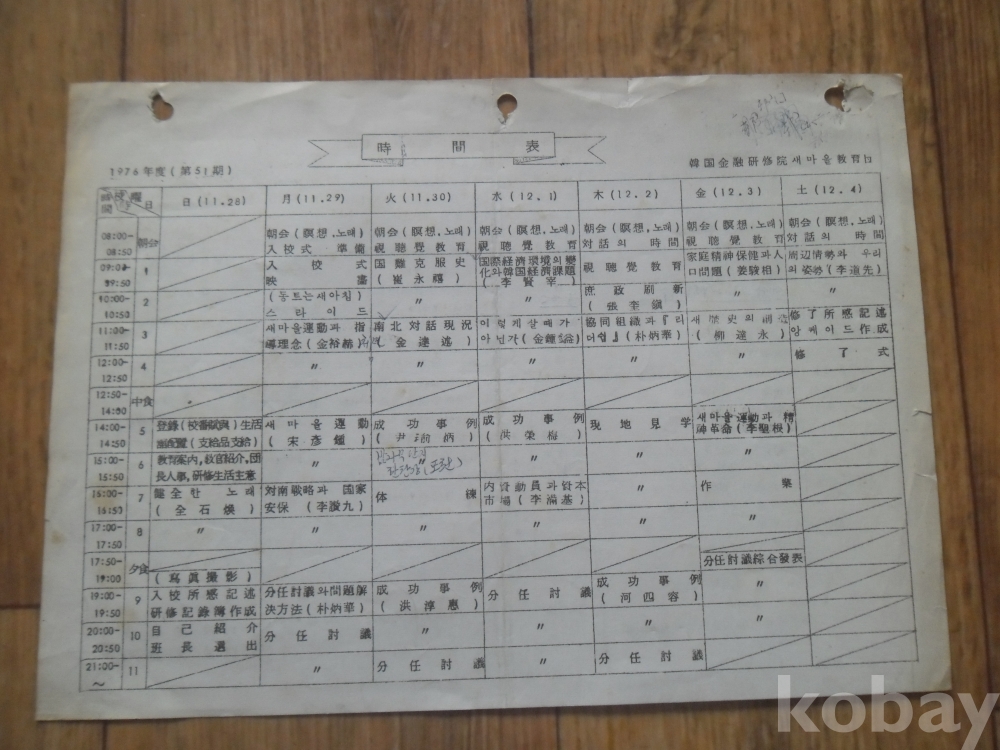 時間表
1976年度(第51期)
韓国金融研修院새마을教育
日 日(11.28) 月(11.29) 火(11.30) 水(12.1) 木(12.2) 金(12.3) 土(12.4)
08:00-08:50 朝会
朝会(瞑想.노래) 朝会(瞑想.노래) 朝会(瞑想.노래) 朝会(瞑想.노래) 朝会(瞑想.노래) 朝会(瞑想.노래)
入校式準備 視聴覺教育 視聴覺教育 対話의時間 視聴覺教育 対話의時間
09:00-09:50 1
入校式 国難克服史 国際経済環境의變 視聴覺教育 家庭精神保健과人 周辺情勢와우리
映 (崔永禧) 化와韓国経済課題 口問題(姜駿相) 의姿勢(李道先)
(李賢宰)
10:00-10:50 2
(동트는새아침) 〃 〃 庶政刷新 〃 〃
스라이드 (張奎鎭)
11:00-11:50 3
새마을運動과指 南北対話現況 이렇게살때가 協同組織과『리 새歴史의 修了所感記述
導理念(金裕赫) (金達述) 아닌가(金鍾 ) 더쉽』(朴炳華) (柳達永) 앙케이드作成
12:00-12:50 4
〃 〃 〃 〃 〃 修了式
12:50-14:00 中食
14:00-14:50 5
登錄(校番試與)生活 새마을運動 成功事例 成功事例 現地見学 새마을運動과精
配置(支給品支給) (宋彦鍾) (尹 炳) (洪榮梅) 神革命(李聖根)
15:00-15:50 6
教育案内,教官紹介,団 〃 〃 〃 〃
長人事,研修生活主意
16:00-16:50 7
健全한노래 対南戦略과国家 体練 内資動員과資本 〃 作業
(全石煥) 安保(李 九) 市場(李滿基)
17:00-17:50 8
〃 〃 〃 〃 〃 〃
17:50-19:00 夕食
(寫眞撮影) 分任討議綜合發表
19:00-19:50 9
入校所感記述 分任討議와問題解 成功事例 分任討議 成功事例 〃
研修記録簿作成 決方法(朴炳華) (洪淳惠) (河四容)
20:00-20:50 10
自己紹介 分任討議 〃 〃 〃 〃
班長選出
21:00-~ 11
〃 分任討議 〃 分任討議
kobay